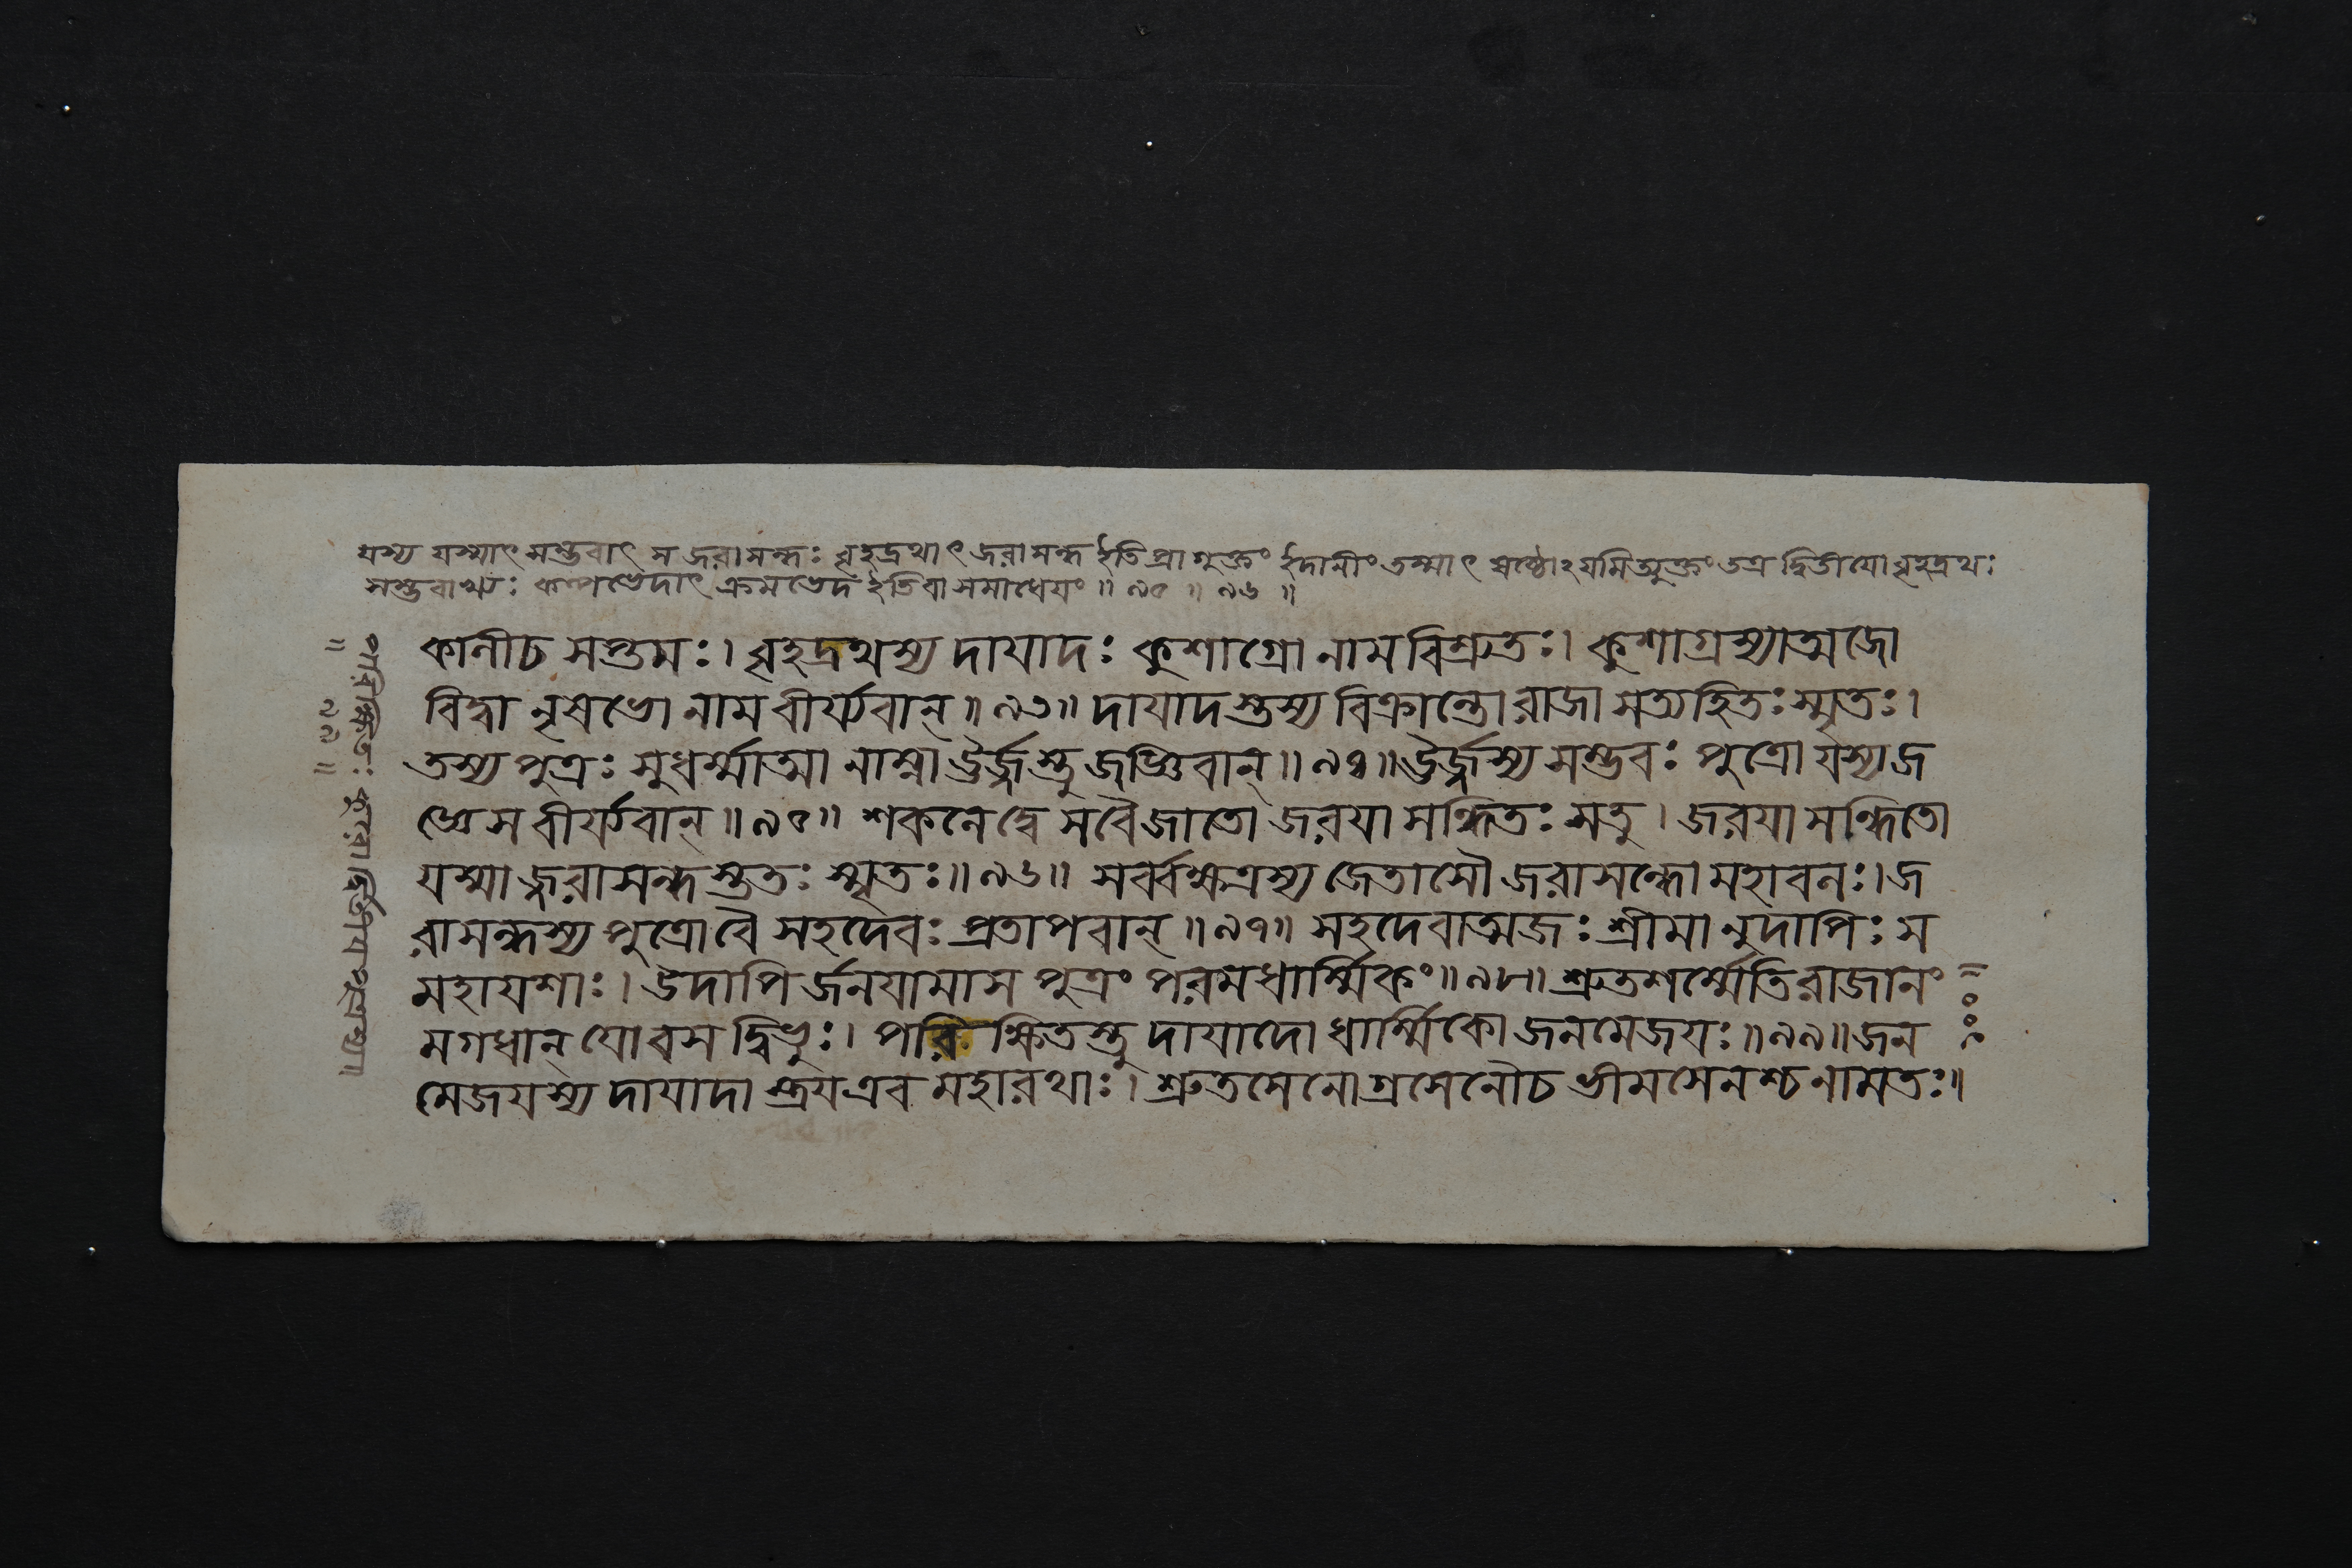 যস্য যস্মাৎ সম্ভবাৎ স জরাসন্ধঃ বৃহদ্রথাৎ জরাসন্ধ ইতি প্রাগুক্তং ইদানীং তস্মাৎ ষষ্ঠোঽয়মিত্যুক্তং তত্র দ্বিতীয়ো বৃহদ্রথঃ
সম্ভবাখ্যঃ কল্পভেদাৎ ক্রমভেদ ইতি বা সমাধেয়ং ॥ ৯৫ ॥ ৯৬ ॥
কানীচ সপ্তমঃ। বৃহদ্রথস্য দায়াদঃ কুশাগ্রো নাম বিশ্রুতঃ। কুশাগ্রস্যাত্মজো
বিদ্বা নৃষভো নাম বীর্য্যবান্ ॥ ৯৩॥ দায়াদস্তস্য বিক্রান্তো রাজা সত্যহিতঃ স্মৃতঃ।
তস্য পুত্রঃ সুধর্ম্মাত্মা নাম্না ঊর্জ্জস্তু জজ্ঞিবান্ ॥ ৯৪ ॥ ঊর্জ্জস্য সম্ভবঃ পুত্রো যস্য জ
জ্ঞে স বীর্য্যবান্ ॥ ৯৫॥ শকলে দ্বে সবৈ জাতো জরয়া সন্ধিতঃ সতু। জরয়া সন্ধিতো
যস্মা জ্জরাসন্ধ স্ততঃ স্মৃতঃ॥ ৯৬॥ সর্ব্বক্ষত্রস্য জেতাসৌ জরাসন্ধো মহাবলঃ। জ
রাসন্ধস্য পুত্রো বৈ সহদেবঃ প্রতাপবান্ ॥ ৯৭॥ সহদেবাত্মজঃ শ্রীমা নুদাপিঃ স
মহাযশাঃ। উদাপি র্জনয়ামাস পুত্রং পরমধার্ম্মিকং॥ ৯৮॥ শ্রুতশর্ম্মেতি রাজানং
মগধান্ যোবস দ্বিভুঃ। পরি ক্ষিতস্তু দায়াদো ধার্ম্মিকো জনমেজয়ঃ ॥ ৯৯॥ জন
মেজয়স্য দায়াদা স্ত্রয় এব মহারথাঃ। শ্রুতসেনোগ্রসেনৌচ ভীমসেনশ্চ নামতঃ॥
॥ ১০০ ॥
॥ ৯৯ ॥